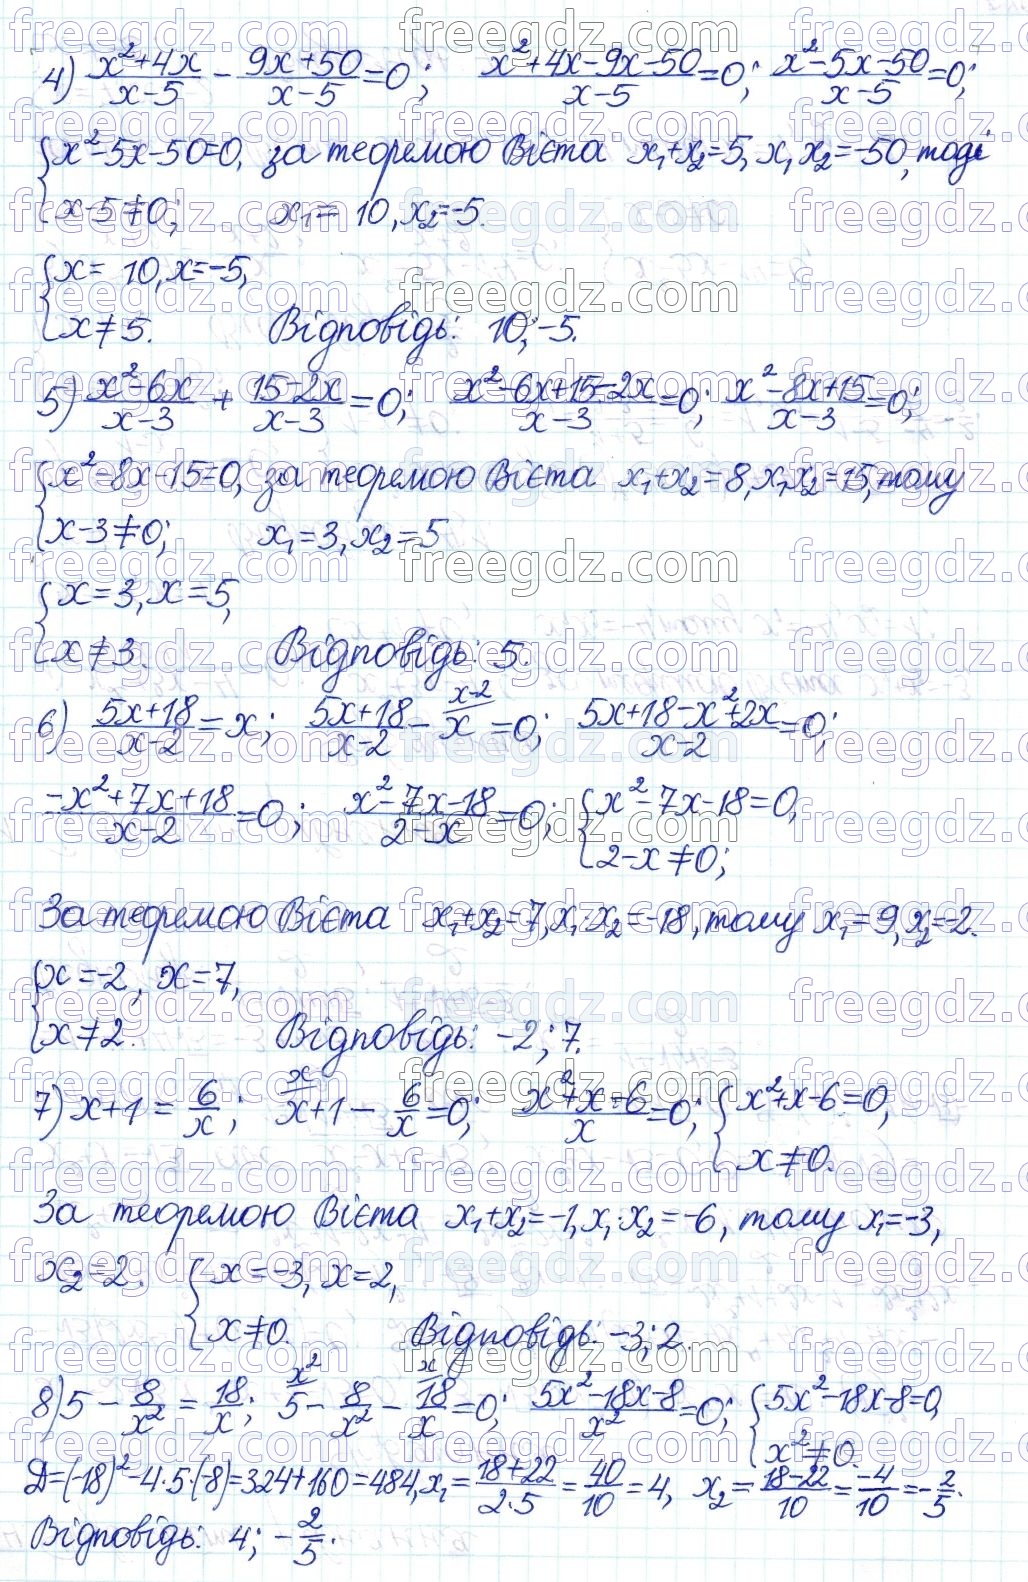 4) (x²+4x)/(x-5) - (9x+50)/(x-5) = 0; (x²+4x-9x-50)/(x-5) = 0; (x²-5x-50)/(x-5) = 0;
{x²-5x-50=0, за теоремою Вієта x₁+x₂=5, x₁x₂=-50, тоді
x-5≠0; x₁= 10, x₂=-5.
{x= 10, x=-5,
x≠5. Відповідь: 10; -5.
5) (x²-6x)/(x-3) + (15-2x)/(x-3) = 0; (x²-6x+15-2x)/(x-3) = 0; (x²-8x+15)/(x-3) = 0;
{x²-8x-15=0, за теоремою Вієта x₁+x₂=8, x₁x₂=15, тому
x-3≠0; x₁=3, x₂=5
{x=3, x=5,
x≠3. Відповідь: 5.
6) (5x+18)/(x-2) = x; (5x+18)/(x-2) - x^(x-2) = 0; (5x+18-x²+2x)/(x-2) = 0;
(-x²+7x+18)/(x-2) = 0; (x²-7x-18)/(2-x) = 0; {x²-7x-18=0,
2-x≠0;
За теоремою Вієта x₁+x₂=7, x₁·x₂=-18, тому x₁=9, x₂=-2.
{x=-2, x=7,
x≠2. Відповідь: -2; 7.
7) x+1 = 6/x; ^x x+1 - 6/x = 0; (x²+x-6)/x = 0; {x²+x-6=0,
x≠0.
За теоремою Вієта x₁+x₂=-1, x₁·x₂=-6, тому x₁=-3,
x₂=2. {x=-3, x=2,
x≠0. Відповідь: -3; 2.
8) 5 - 8/x² = 18/x; ^(x²) 5 - 8/x² - ^x 18/x = 0; (5x²-18x-8)/x² = 0; {5x²-18x-8=0,
x²≠0.
D=(-18)²-4·5·(-8)=324+160=484, x₁= (18+22)/(2·5) = 40/10 = 4, x₂= (18-22)/10 = -4/10 = -2/5.
Відповідь: 4; -2/5.
freegdz.com